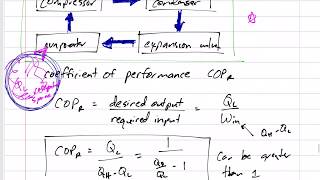 compressor condenser
evaporator expansion valve
QL refrigerated space
coefficient of performance COPR
COPR = desired output / required input = QL / Win
QH - QL
COPR = QL / (QH - QL) = 1 / (QH/QL - 1) can be greater than 1